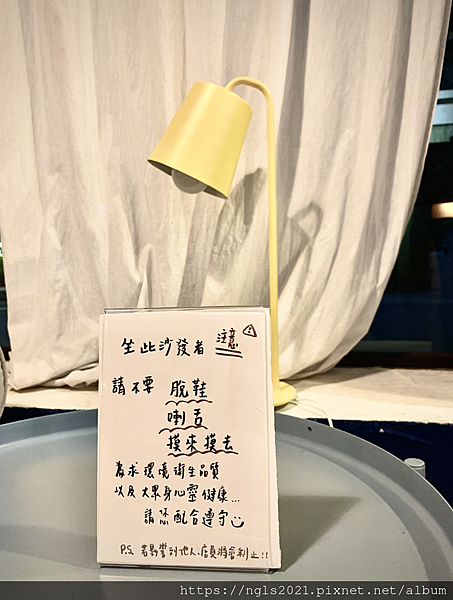 坐此沙發者 注意
請不要 脫鞋
喇舌
摸來摸去
為求環境衛生品質
以及大眾身心靈健康...
請您配合遵守
P.S. 若影響到他人,店員將會制止!!
https://ngls2021.pixnet.net/album